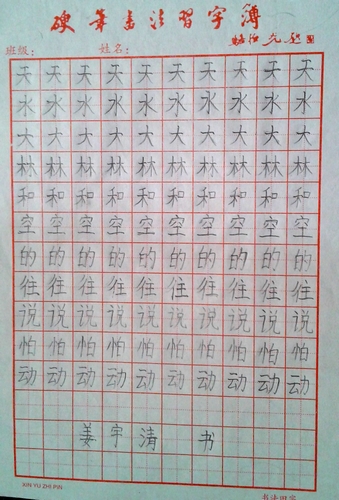 硬筆書法習字簿
班级: 姓名:
天天天天天天天天天天
水水水水水水水水水水
大大大大大大大大大大
林林林林林林林林林林
和和和和和和和和和和
空空空空空空空空空空
的的的的的的的的的的
往往往往往往往往往往
说说说说说说说说说说
怕怕怕怕怕怕怕怕怕怕
动动动动动动动动动动
姜宇清 书
XIN YU ZHI PIN